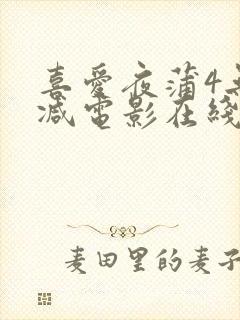 喜愛夜蒲4無
減電影在綫
麦田里的麦子